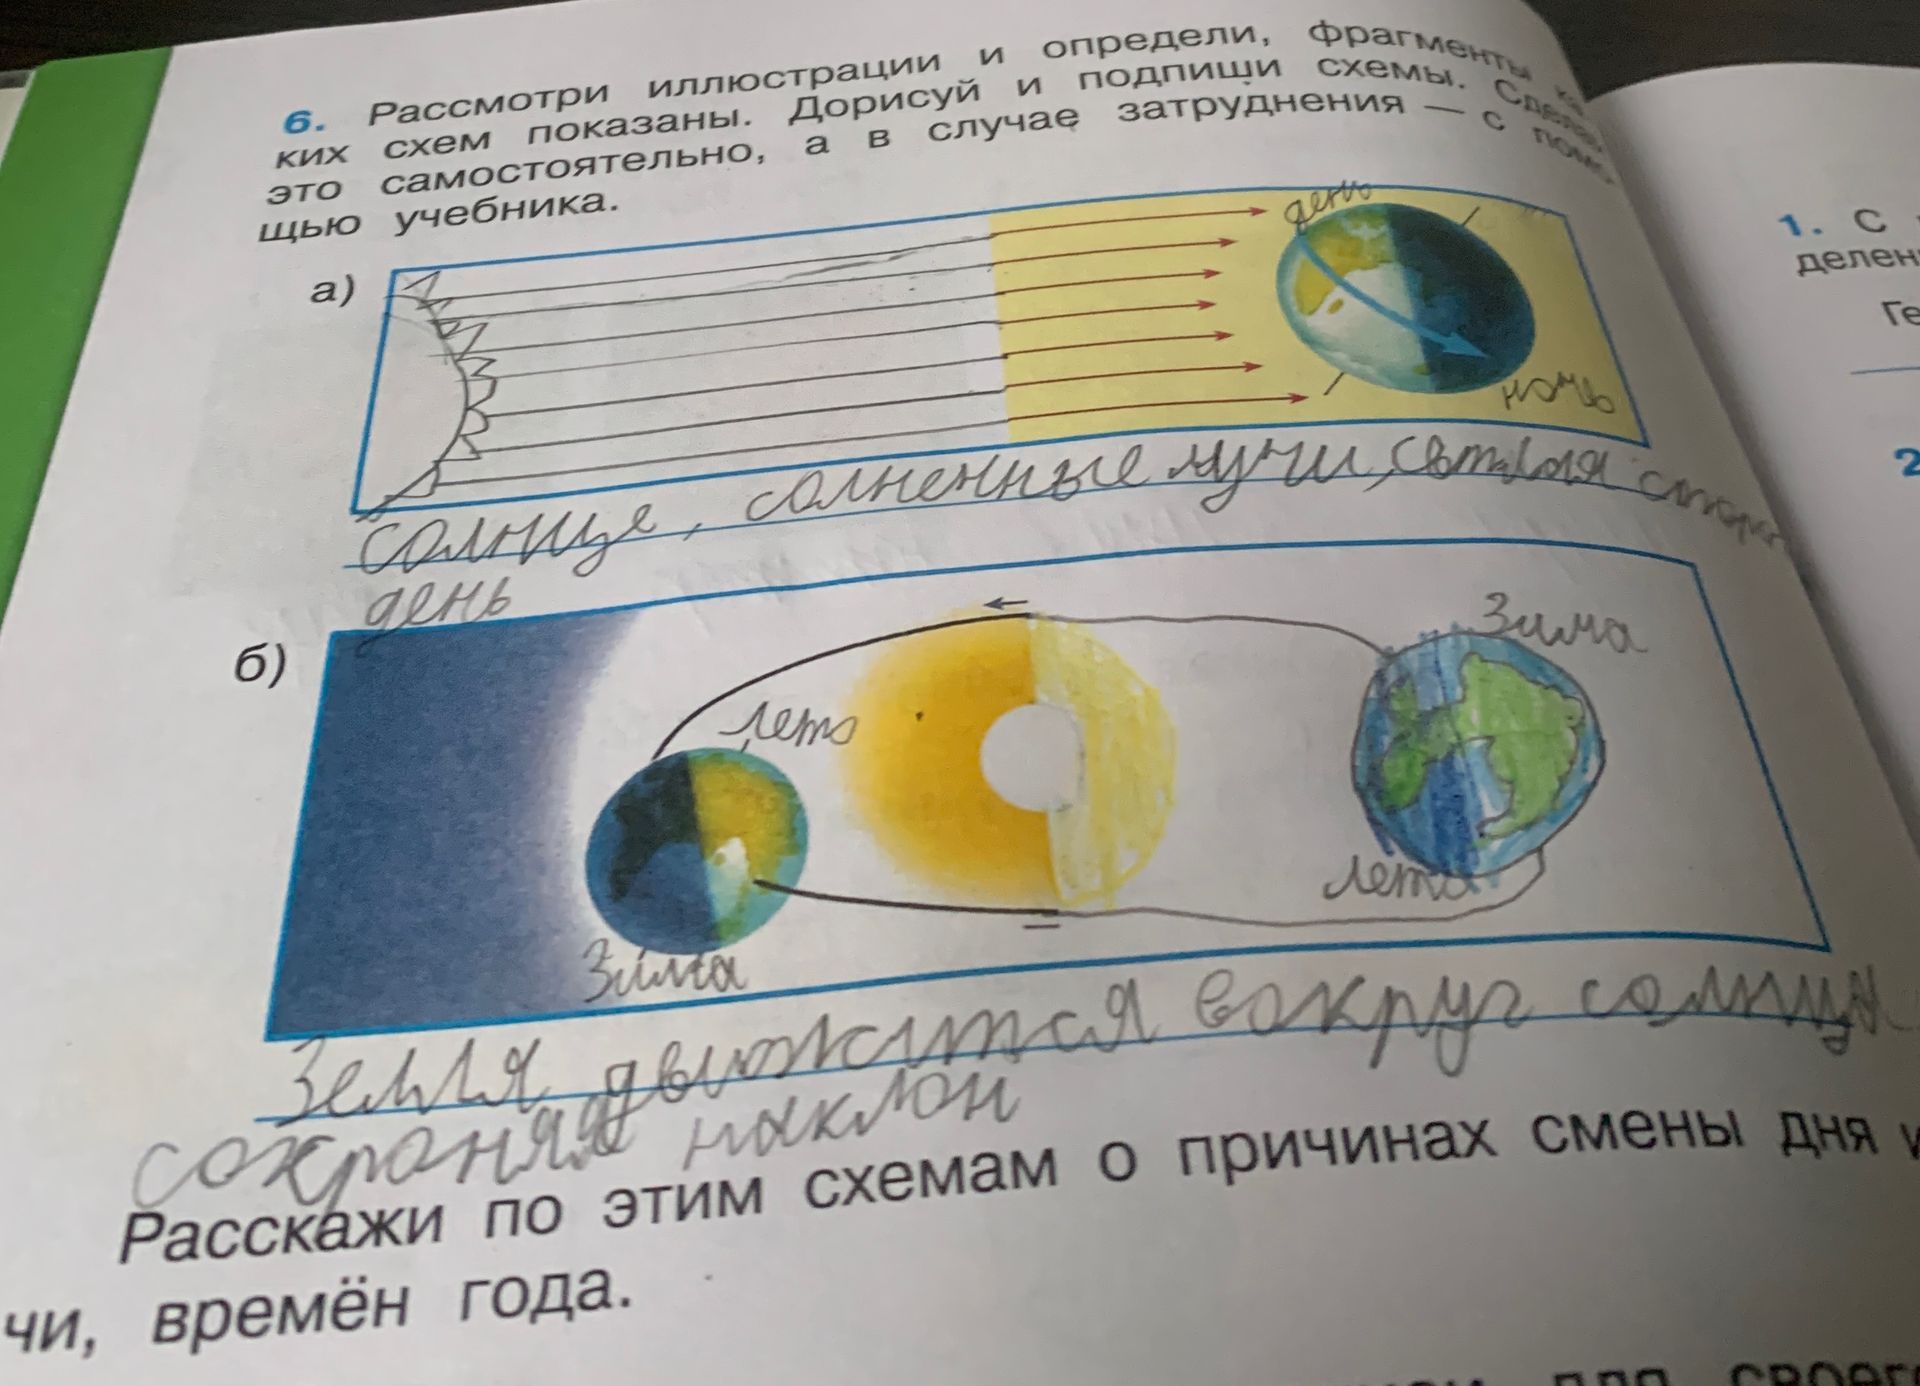 6. Рассмотри иллюстрации и определи, фрагменты ка
ких схем показаны. Дорисуй и подпиши схемы. Сделай
это самостоятельно, а в случае затруднения — с помо
щью учебника.
а)
день
ночь
солнце, солненные лучи, светлая сторон
день
б)
Зима
лето
лето
Зима
Земля движится вокруг солнца
сохраняя наклон
Расскажи по этим схемам о причинах смены дня и
чи, времён года.
для своего
1. С
делен
Ге
2